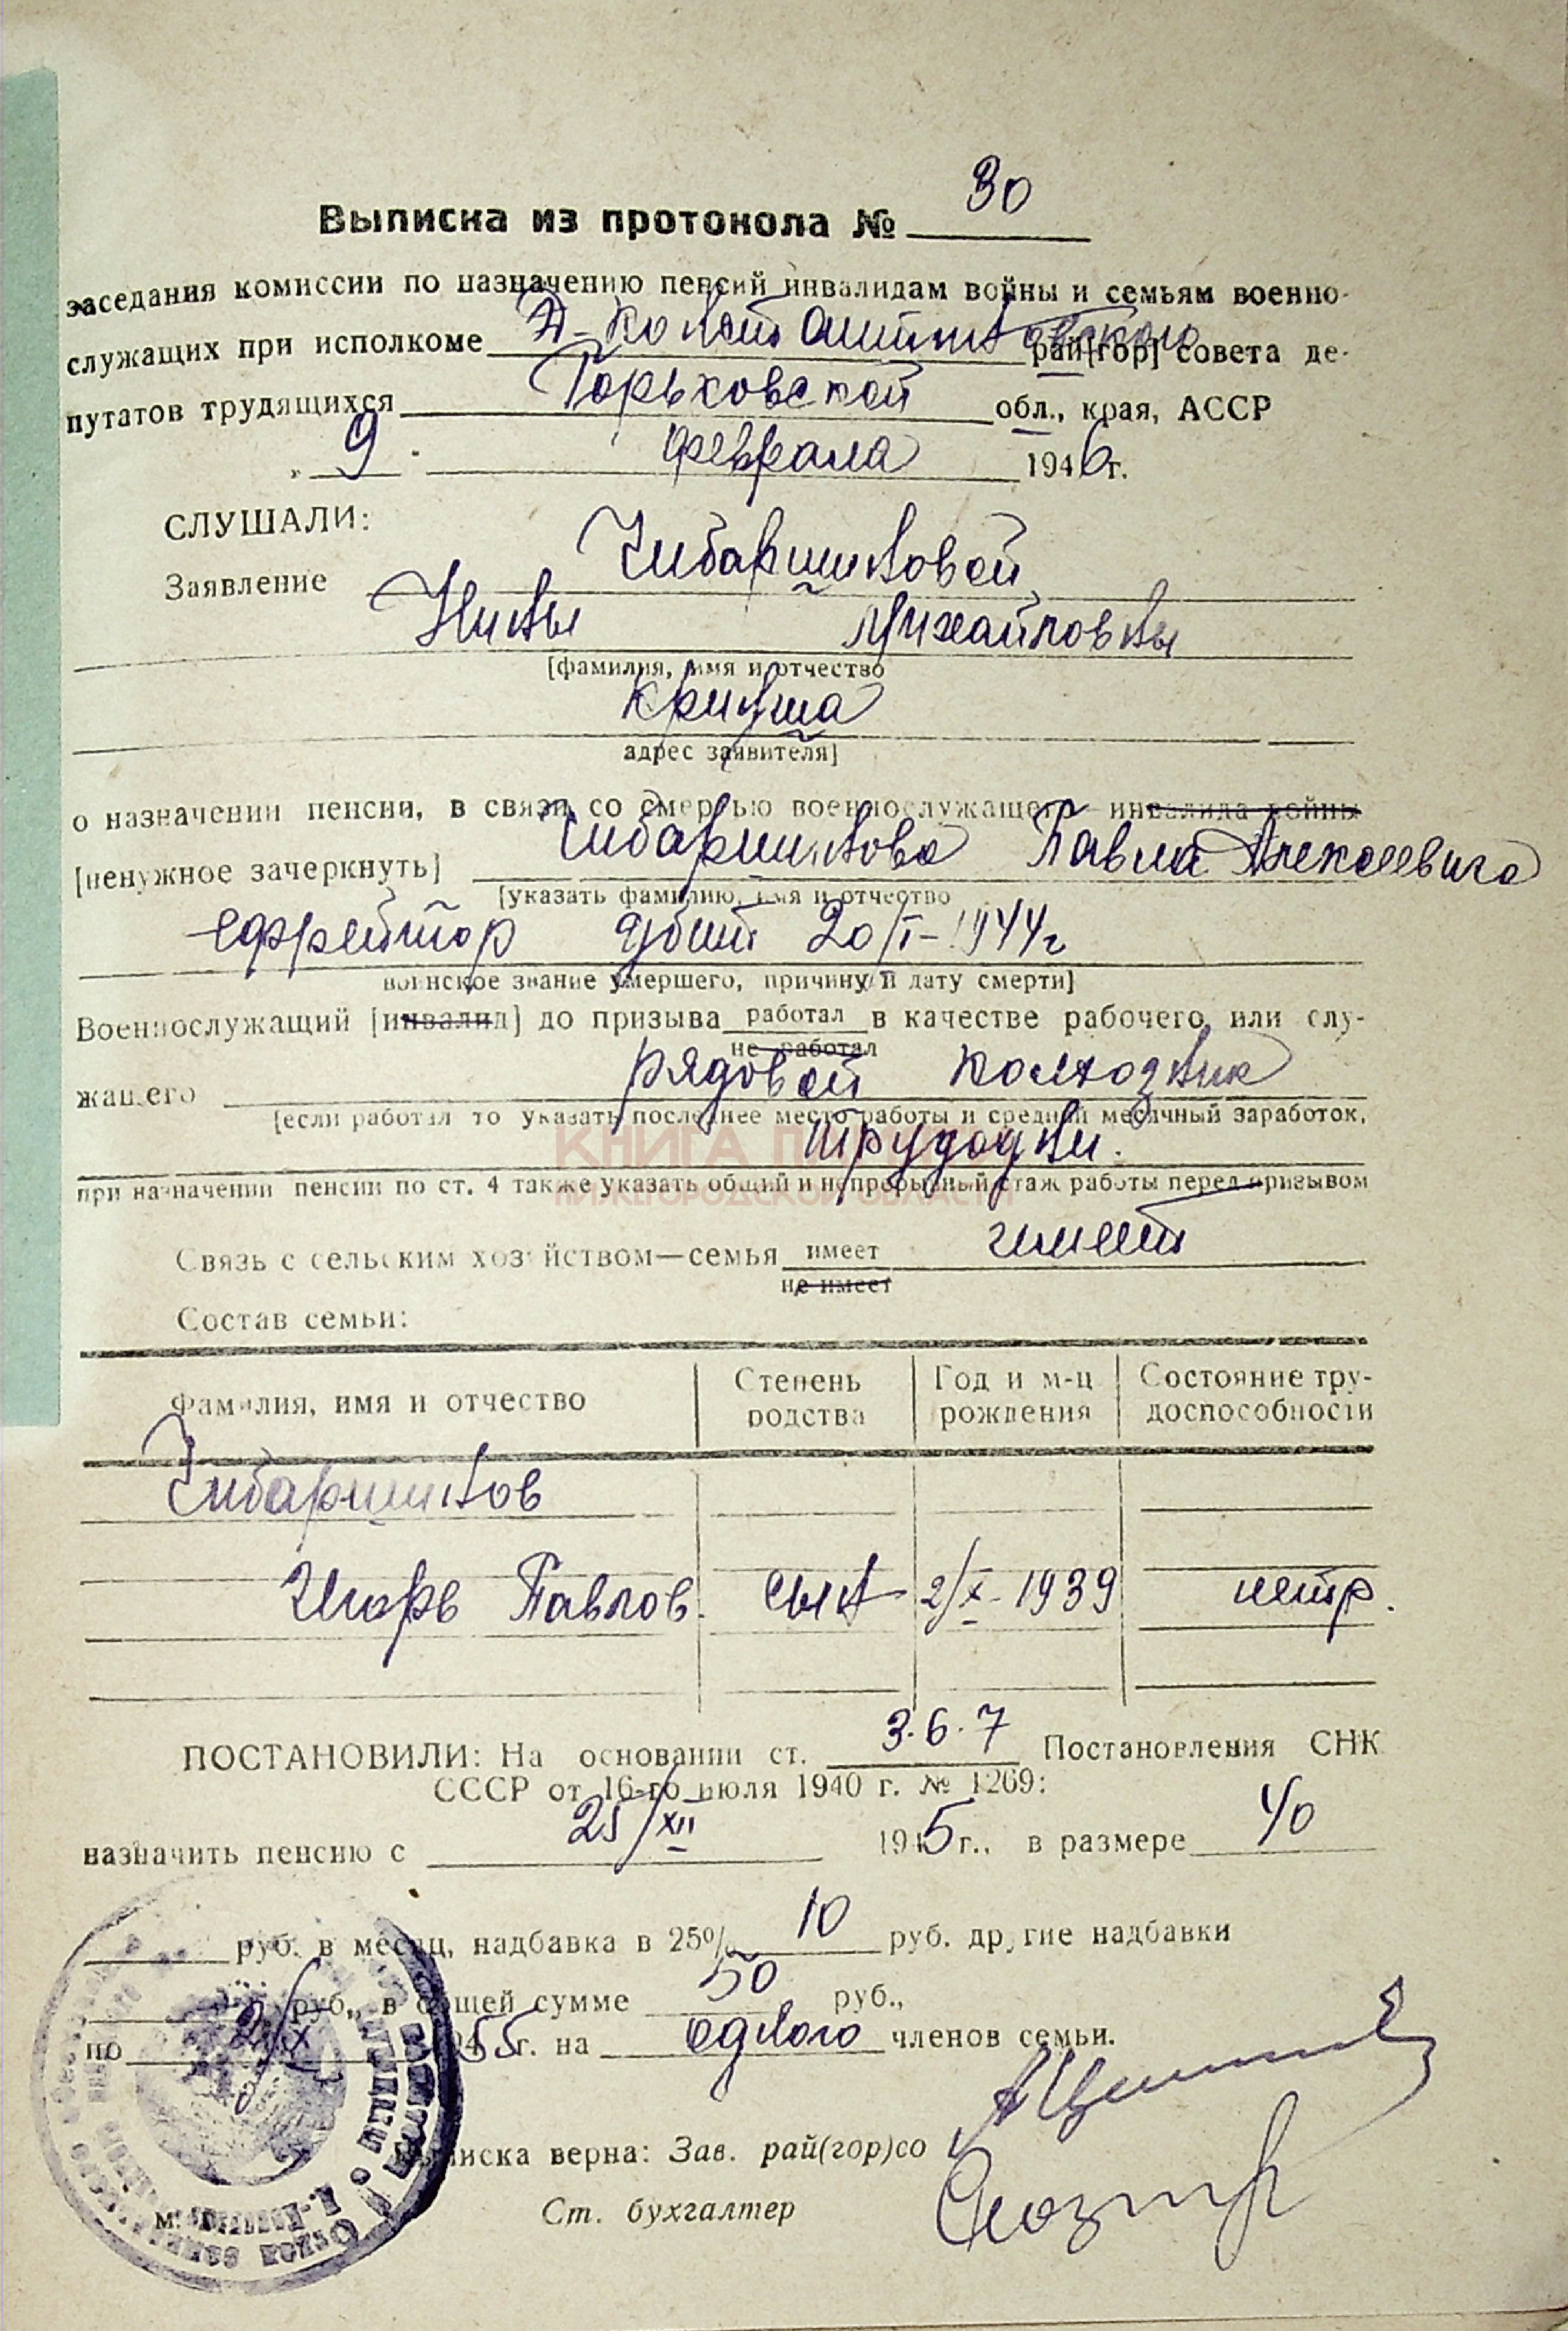 Выписка из протокола № 30
заседания комиссии по назначению пенсий инвалидам войны и семьям военно-
служащих при исполкоме Д-Константиновского рай[гор] совета де-
путатов трудящихся Горьковской обл., края, АССР
„ 9 " февраля 1946 г.
СЛУШАЛИ:
Заявление Чибаршиновой
Нины Михайловны
[фамилия, имя и отчество
Криуша
адрес заявителя]
о назначении пенсии, в связи со смертью военнослужащего инвалида войны
[ненужное зачеркнуть] Чибаршинова Павла Алексеевича
[указать фамилию, имя и отчество
ефрейтор убит 20/I-1944г
воинское звание умершего, причину и дату смерти]
Военнослужащий [инвалид] до призыва работал в качестве рабочего или слу-
не работал
жащего рядовой колхозник
[если работал то указать последнее место работы и средний месячный заработок,
трудодни.
при назначении пенсии по ст. 4 также указать общий и непрерывный стаж работы перед призывом
КНИГА
НИЖЕГОРОДСКОЙ ОБЛАСТИ
Связь с сельским хозяйством—семья имеет имеет
не имеет
Состав семьи:
Фамилия, имя и отчество Степень родства Год и м-ц рождения Состояние тру-доспособности
Чибаршинов
Игорь Павлов. сын 2/X-1939 нетр.
ПОСТАНОВИЛИ: На основании ст. 3.6.7 Постановления СНК
СССР от 16-го июля 1940 г. № 1269:
назначить пенсию с 25/XII 1945 г., в размере 40
руб. в месяц, надбавка в 25% 10 руб. другие надбавки
руб., в общей сумме 50 руб.,
по 2/X 1955 г. на одного членов семьи.
Выписка верна: Зав. рай(гор)со
Ст. бухгалтер
м.